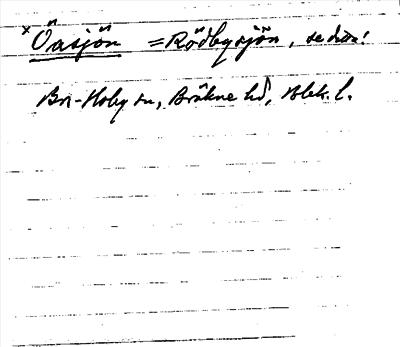 x Öasjön = Rödbysjön, se den!
Br-Hoby sn, Bräkne hd, Blek. l.